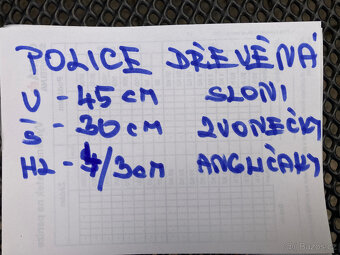 POLICE DŘEVĚNÁ
V - 45 cm SLONI
Š - 30 cm ZVONEČKY
HL - 4/3 cm ANGLIČÁKY
© Bazos.cz